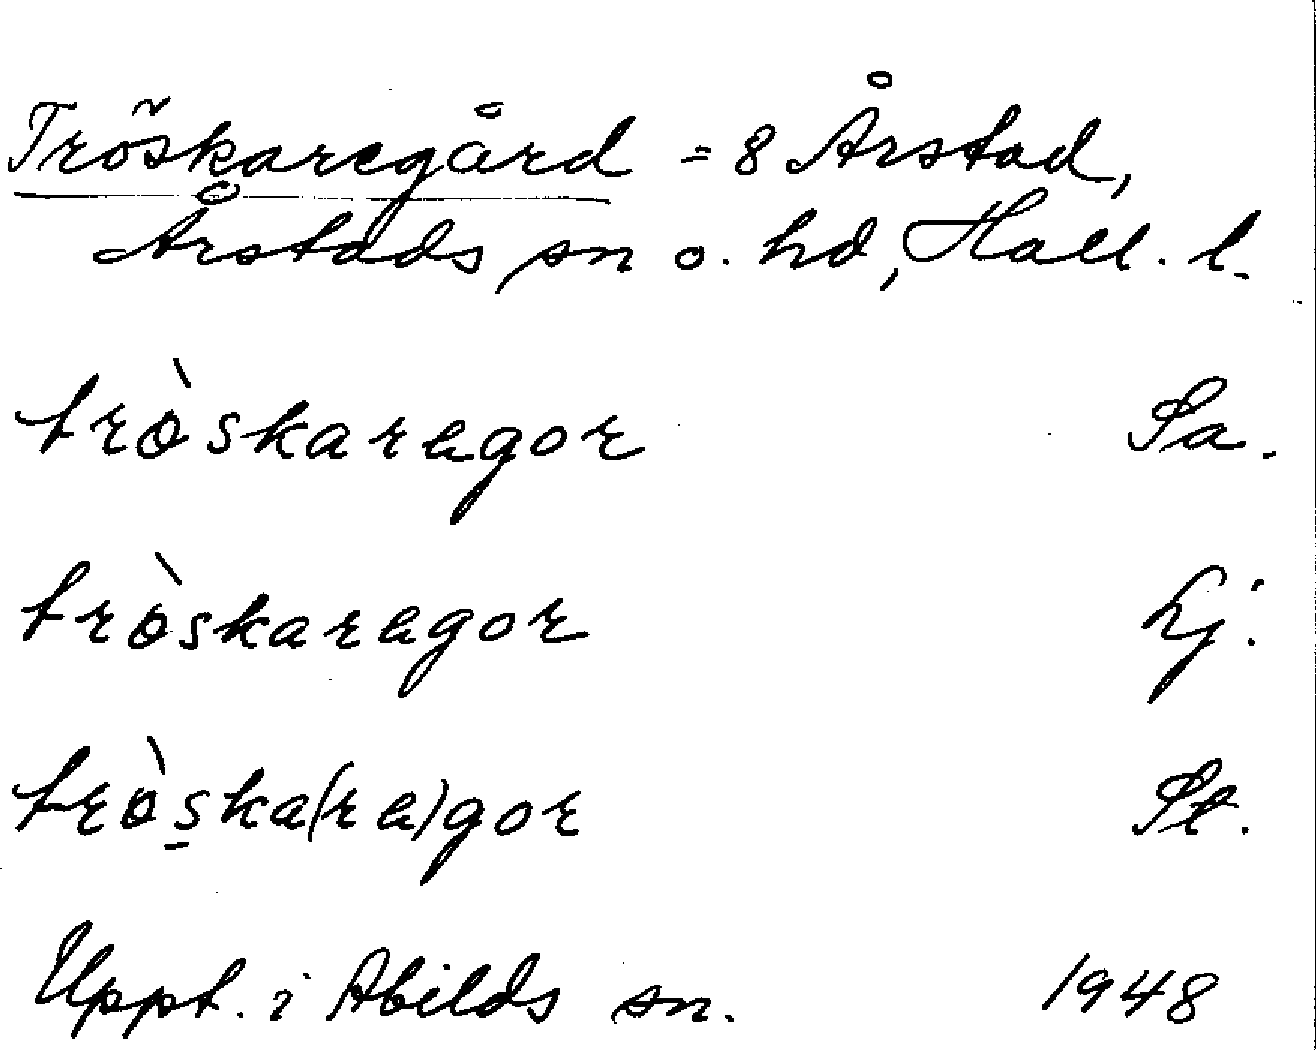 Tröskaregård = 8 Årstad,
Årstads sn o. hd, Hall. l.
tròskaragor Sa.
tròskaragor Lj.
tròska(ra)gor St.
Uppt. i Abilds sn. 1948